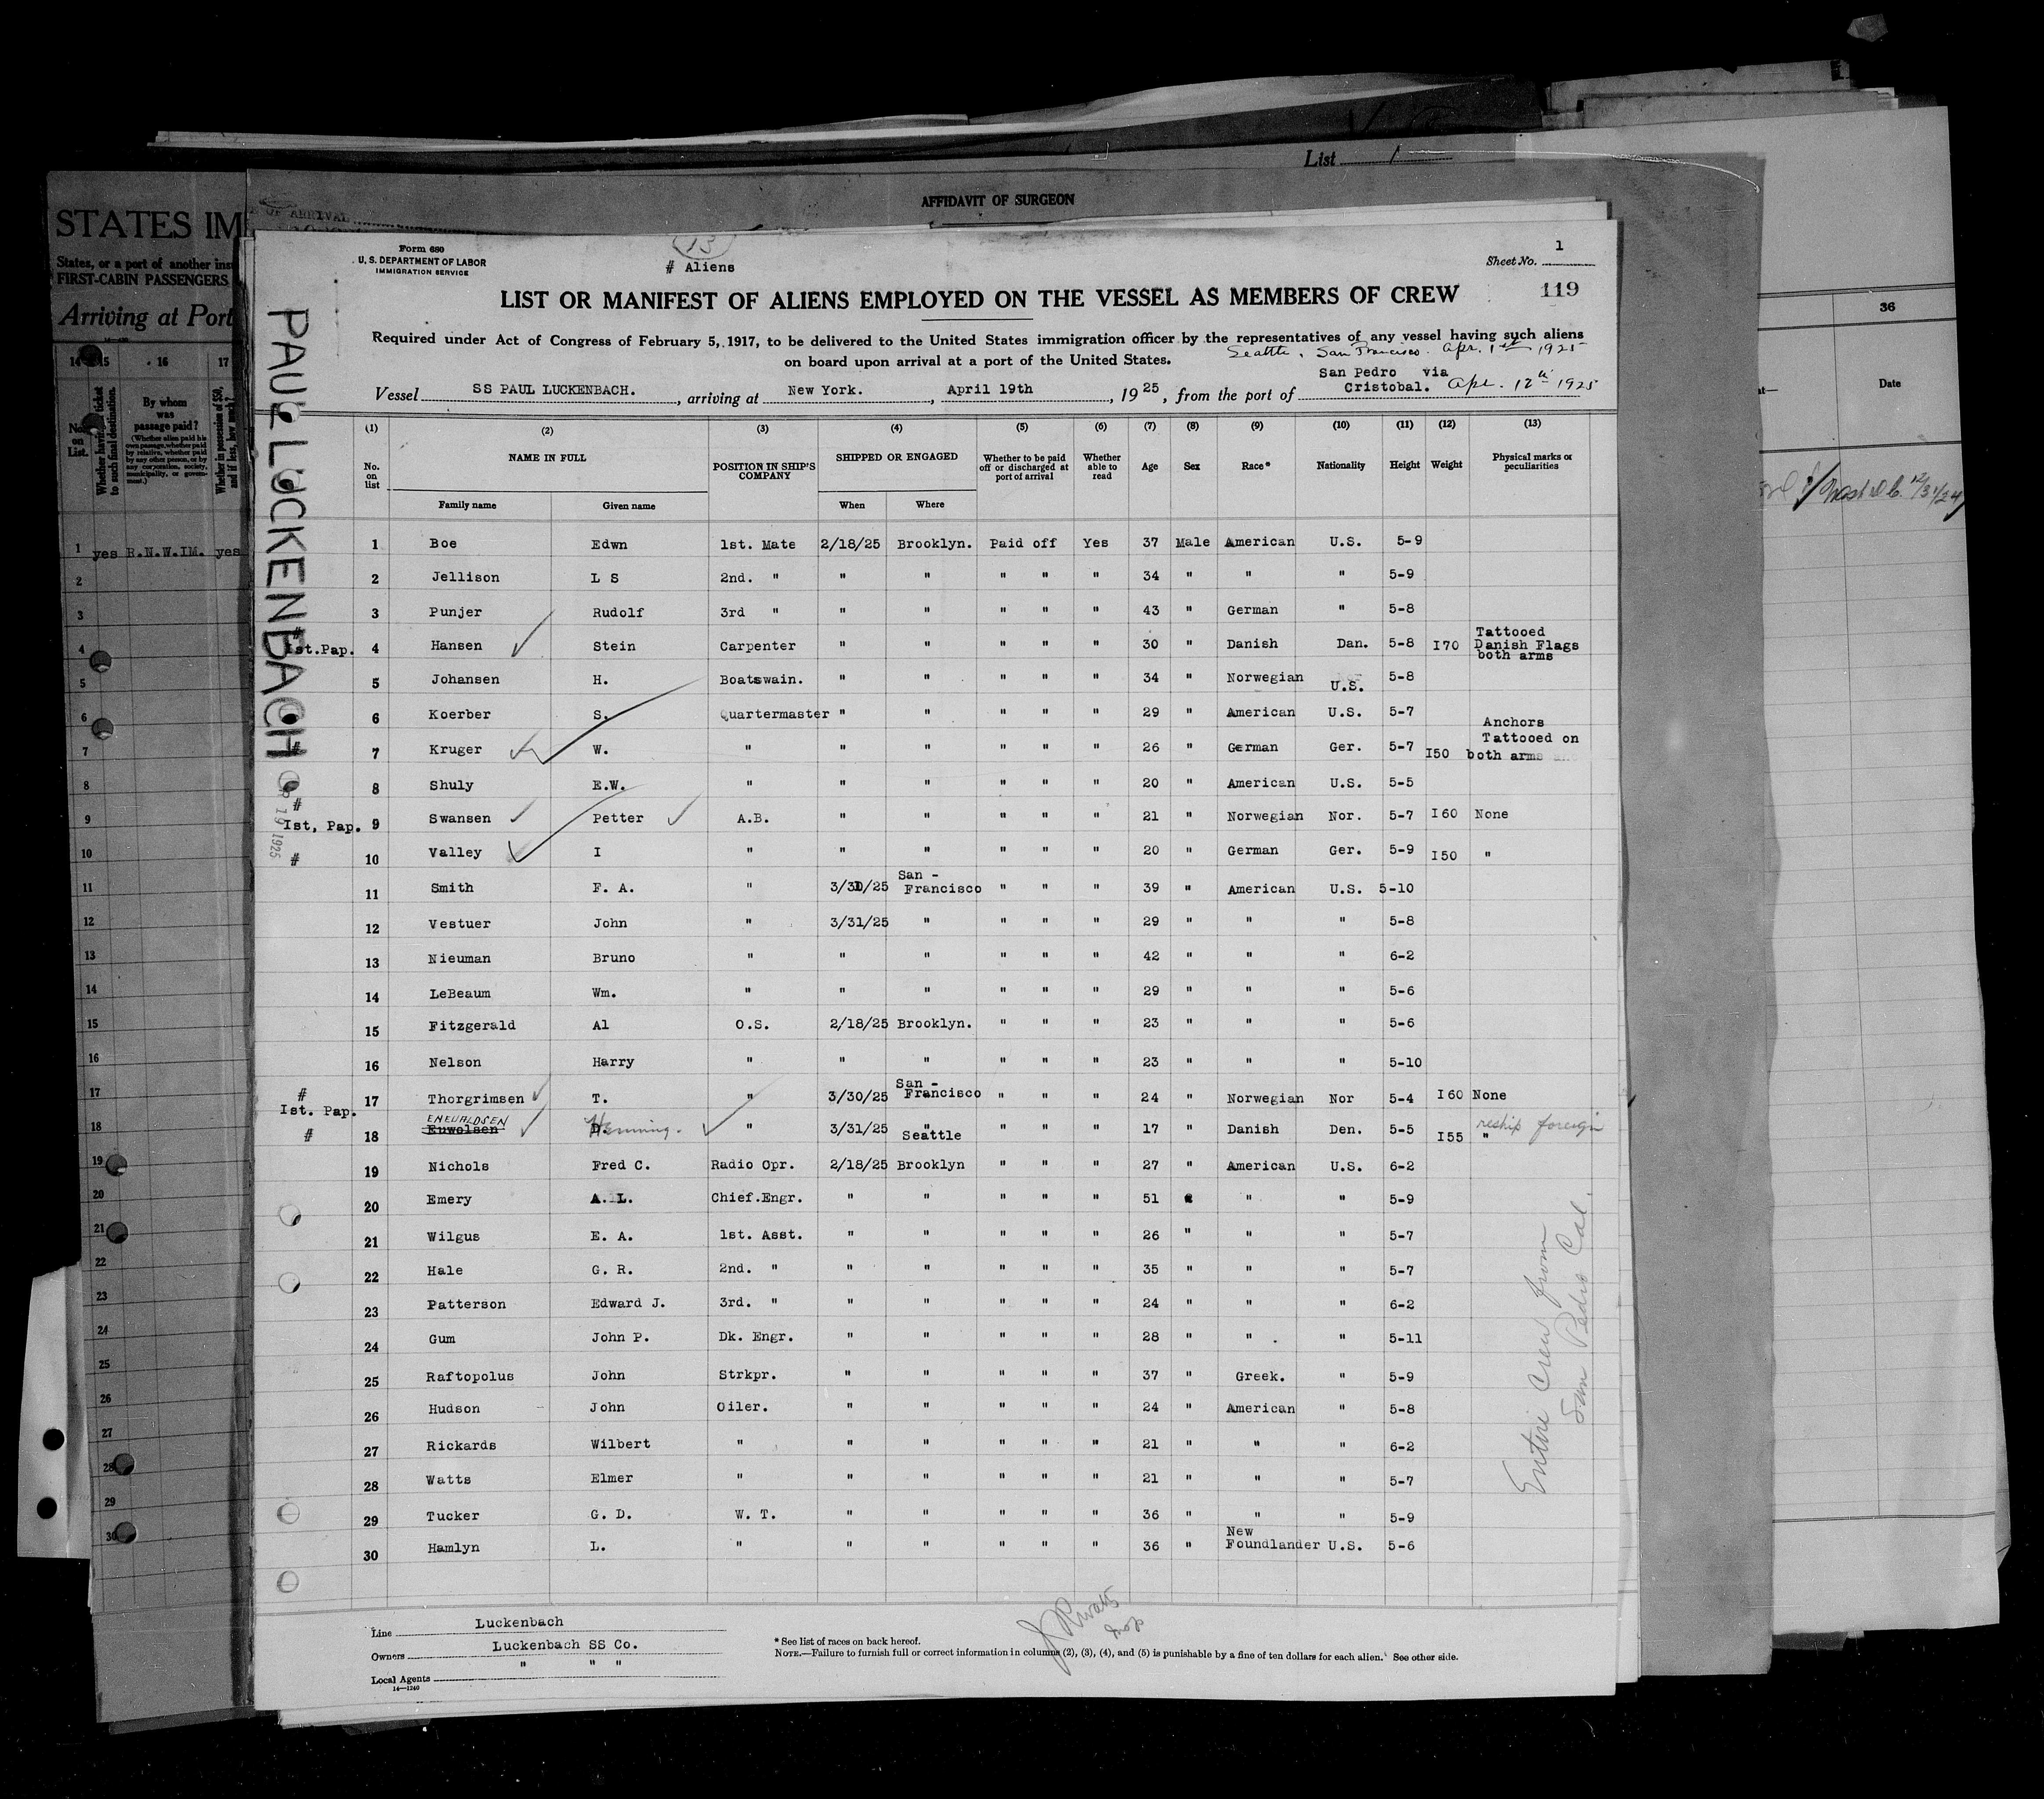 List 1
AFFIDAVIT OF SURGEON
STATES IM
States, or a port of another ins
FIRST-CABIN PASSENGERS
Arriving at Port
14 15 16 17
No. on List.
Whether having ticket to such final destination.
By whom was passage paid?
(Whether alien paid his own passage, whether paid by relative, whether paid by any other person, or by any corporation, society, municipality, or government.)
Whether in possession of $50, and if less, how much?
1 yes R.N.W.IM. yes
2
3
4
5
6
7
8
9
10
11
12
13
14
15
16
17
18
19
20
21
22
23
24
25
26
27
28
29
30
36
Date
12/31/24
PAUL LUCKENBACH
19 1925
Form 680
U. S. DEPARTMENT OF LABOR
IMMIGRATION SERVICE
13
# Aliens
Sheet No. 1
119
LIST OR MANIFEST OF ALIENS EMPLOYED ON THE VESSEL AS MEMBERS OF CREW
Required under Act of Congress of February 5, 1917, to be delivered to the United States immigration officer by the representatives of any vessel having such aliens
on board upon arrival at a port of the United States.
Seattle, San Francisco. Apr. 1st 1925
San Pedro via
Vessel SS PAUL LUCKENBACH. , arriving at New York. , April 19th , 1925 , from the port of Cristobal. Apr. 12th 1925
(1) (2) (3) (4) (5) (6) (7) (8) (9) (10) (11) (12) (13)
No. on list
NAME IN FULL
Family name Given name
POSITION IN SHIP'S COMPANY
SHIPPED OR ENGAGED
When Where
Whether to be paid off or discharged at port of arrival
Whether able to read
Age Sex Race* Nationality Height Weight
Physical marks or peculiarities
1 Boe Edwn 1st. Mate 2/18/25 Brooklyn. Paid off Yes 37 Male American U.S. 5-9
2 Jellison L S 2nd. " " " " " " 34 " " " 5-9
3 Punjer Rudolf 3rd " " " " " " 43 " German " 5-8
# 1st.Pap. 4 Hansen Stein Carpenter " " " " " 30 " Danish Dan. 5-8 I70 Tattooed Danish Flags both arms
5 Johansen H. Boatswain. " " " " " 34 " Norwegian U.S. 5-8
6 Koerber S. Quartermaster " " " " " 29 " American U.S. 5-7
# 7 Kruger W. " " " " " " 26 " German Ger. 5-7 I50 Anchors Tattooed on both arms
8 Shuly E.W. " " " " " " 20 " American U.S. 5-5
# Ist, Pap. 9 Swansen Petter A.B. " " " " " 21 " Norwegian Nor. 5-7 I60 None
# 10 Valley I " " " " " " 20 " German Ger. 5-9 I50 "
11 Smith F. A. " 3/31/25 San - Francisco " " " 39 " American U.S. 5-10
12 Vestuer John " 3/31/25 " " " " 29 " " " 5-8
13 Nieuman Bruno " " " " " " 42 " " " 6-2
14 LeBeaum Wm. " " " " " " 29 " " " 5-6
15 Fitzgerald Al O.S. 2/18/25 Brooklyn. " " " 23 " " " 5-6
16 Nelson Harry " " " " " " 23 " " " 5-10
# Ist. Pap. 17 Thorgrimsen T. " 3/30/25 San - Francisco " " " 24 " Norwegian Nor 5-4 I60 None
# 18 ENEVALDSEN Euwolsen D. Henning. " 3/31/25 " Seattle " " " 17 " Danish Den. 5-5 I55 " reship foreign
19 Nichols Fred C. Radio Opr. 2/18/25 Brooklyn " " " 27 " American U.S. 6-2
20 Emery A. L. Chief.Engr. " " " " " 51 " " " 5-9
21 Wilgus E. A. 1st. Asst. " " " " " 26 " " " 5-7
22 Hale G. R. 2nd. " " " " " " 35 " " " 5-7
23 Patterson Edward J. 3rd. " " " " " " 24 " " " 6-2
24 Gum John P. Dk. Engr. " " " " " 28 " " . " 5-11
25 Raftopolus John Strkpr. " " " " " 37 " Greek. " 5-9
26 Hudson John Oiler. " " " " " 24 " American " 5-8
27 Rickards Wilbert " " " " " " 21 " " " 6-2
28 Watts Elmer " " " " " " 21 " " " 5-7
29 Tucker G. D. W. T. " " " " " 36 " " " 5-9
30 Hamlyn L. " " " " " " 36 " New Foundlander U.S. 5-6
Entire Crew from
San Pedro Cal.
Line Luckenbach
Owners Luckenbach SS Co.
Local Agents " " "
14—1240
* See list of races on back hereof.
NOTE.—Failure to furnish full or correct information in columns (2), (3), (4), and (5) is punishable by a fine of ten dollars for each alien. See other side.